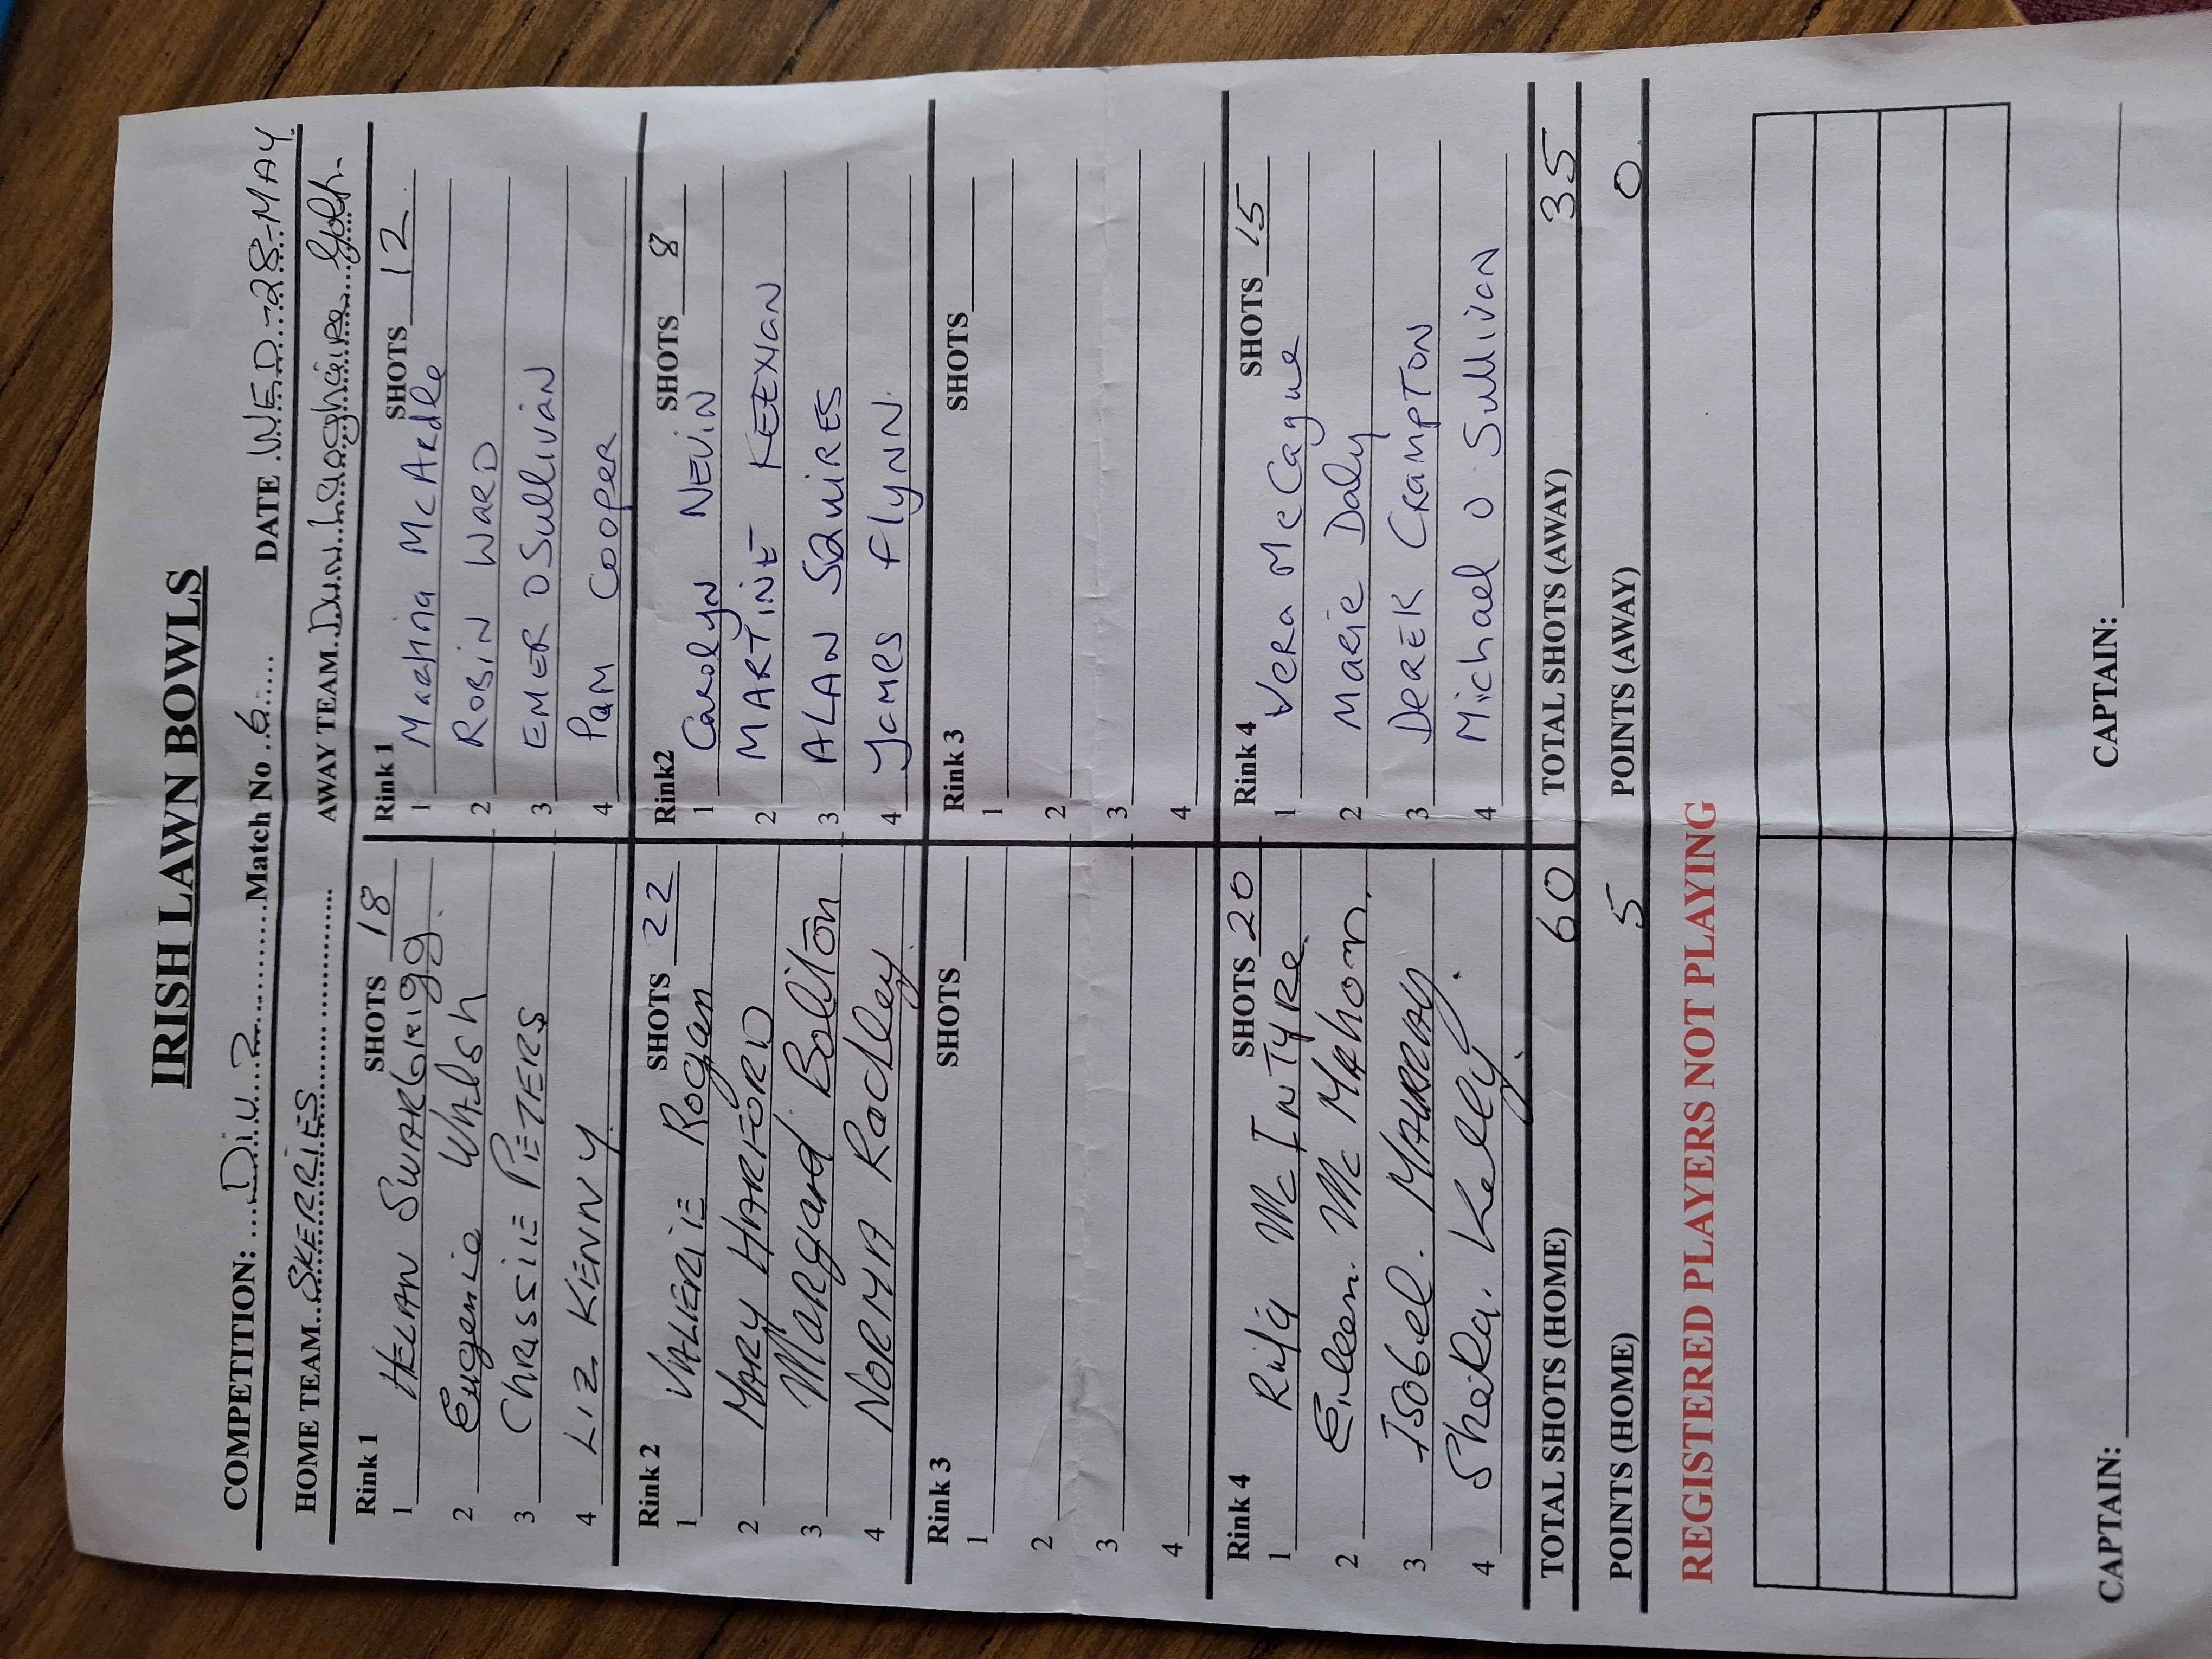 IRISH LAWN BOWLS
COMPETITION: Div. 2 Match No 6 DATE WED-28-MAY
HOME TEAM SKERRIES AWAY TEAM Dun Laoghaire
Rink 1 SHOTS 18
1 HELAN SWARBRIGG
2 Eugenie WALSH
3 CHRISSIE PETERS
4 LIZ KENNY
Rink 1 SHOTS 12
1 Martina McArdle
2 ROBIN WARD
3 EMER OSullivan
4 PAM COOPER
Rink 2 SHOTS 22
1 VALIERIE Rogan
2 MARY HARFORD
3 Margard Bolton
4 NORMA Radley
Rink2 SHOTS 8
1 Carolyn NEVIN
2 MARTINE KEENAN
3 ALAN SQUIRES
4 James Flynn
Rink 3 SHOTS
1
2
3
4
Rink 3 SHOTS
1
2
3
4
Rink 4 SHOTS 20
1 Rita Mc INTYRE
2 Eileen. Mc Mahon
3 Isobel. MURRAY
4 Sheila. Kelly
Rink 4 SHOTS 15
1 Vera McCague
2 Marie Daly
3 DEREK CRAMPTON
4 Michael O Sullivan
TOTAL SHOTS (HOME) 60 TOTAL SHOTS (AWAY) 35
POINTS (HOME) 5 POINTS (AWAY) 0
REGISTERED PLAYERS NOT PLAYING
CAPTAIN: CAPTAIN: